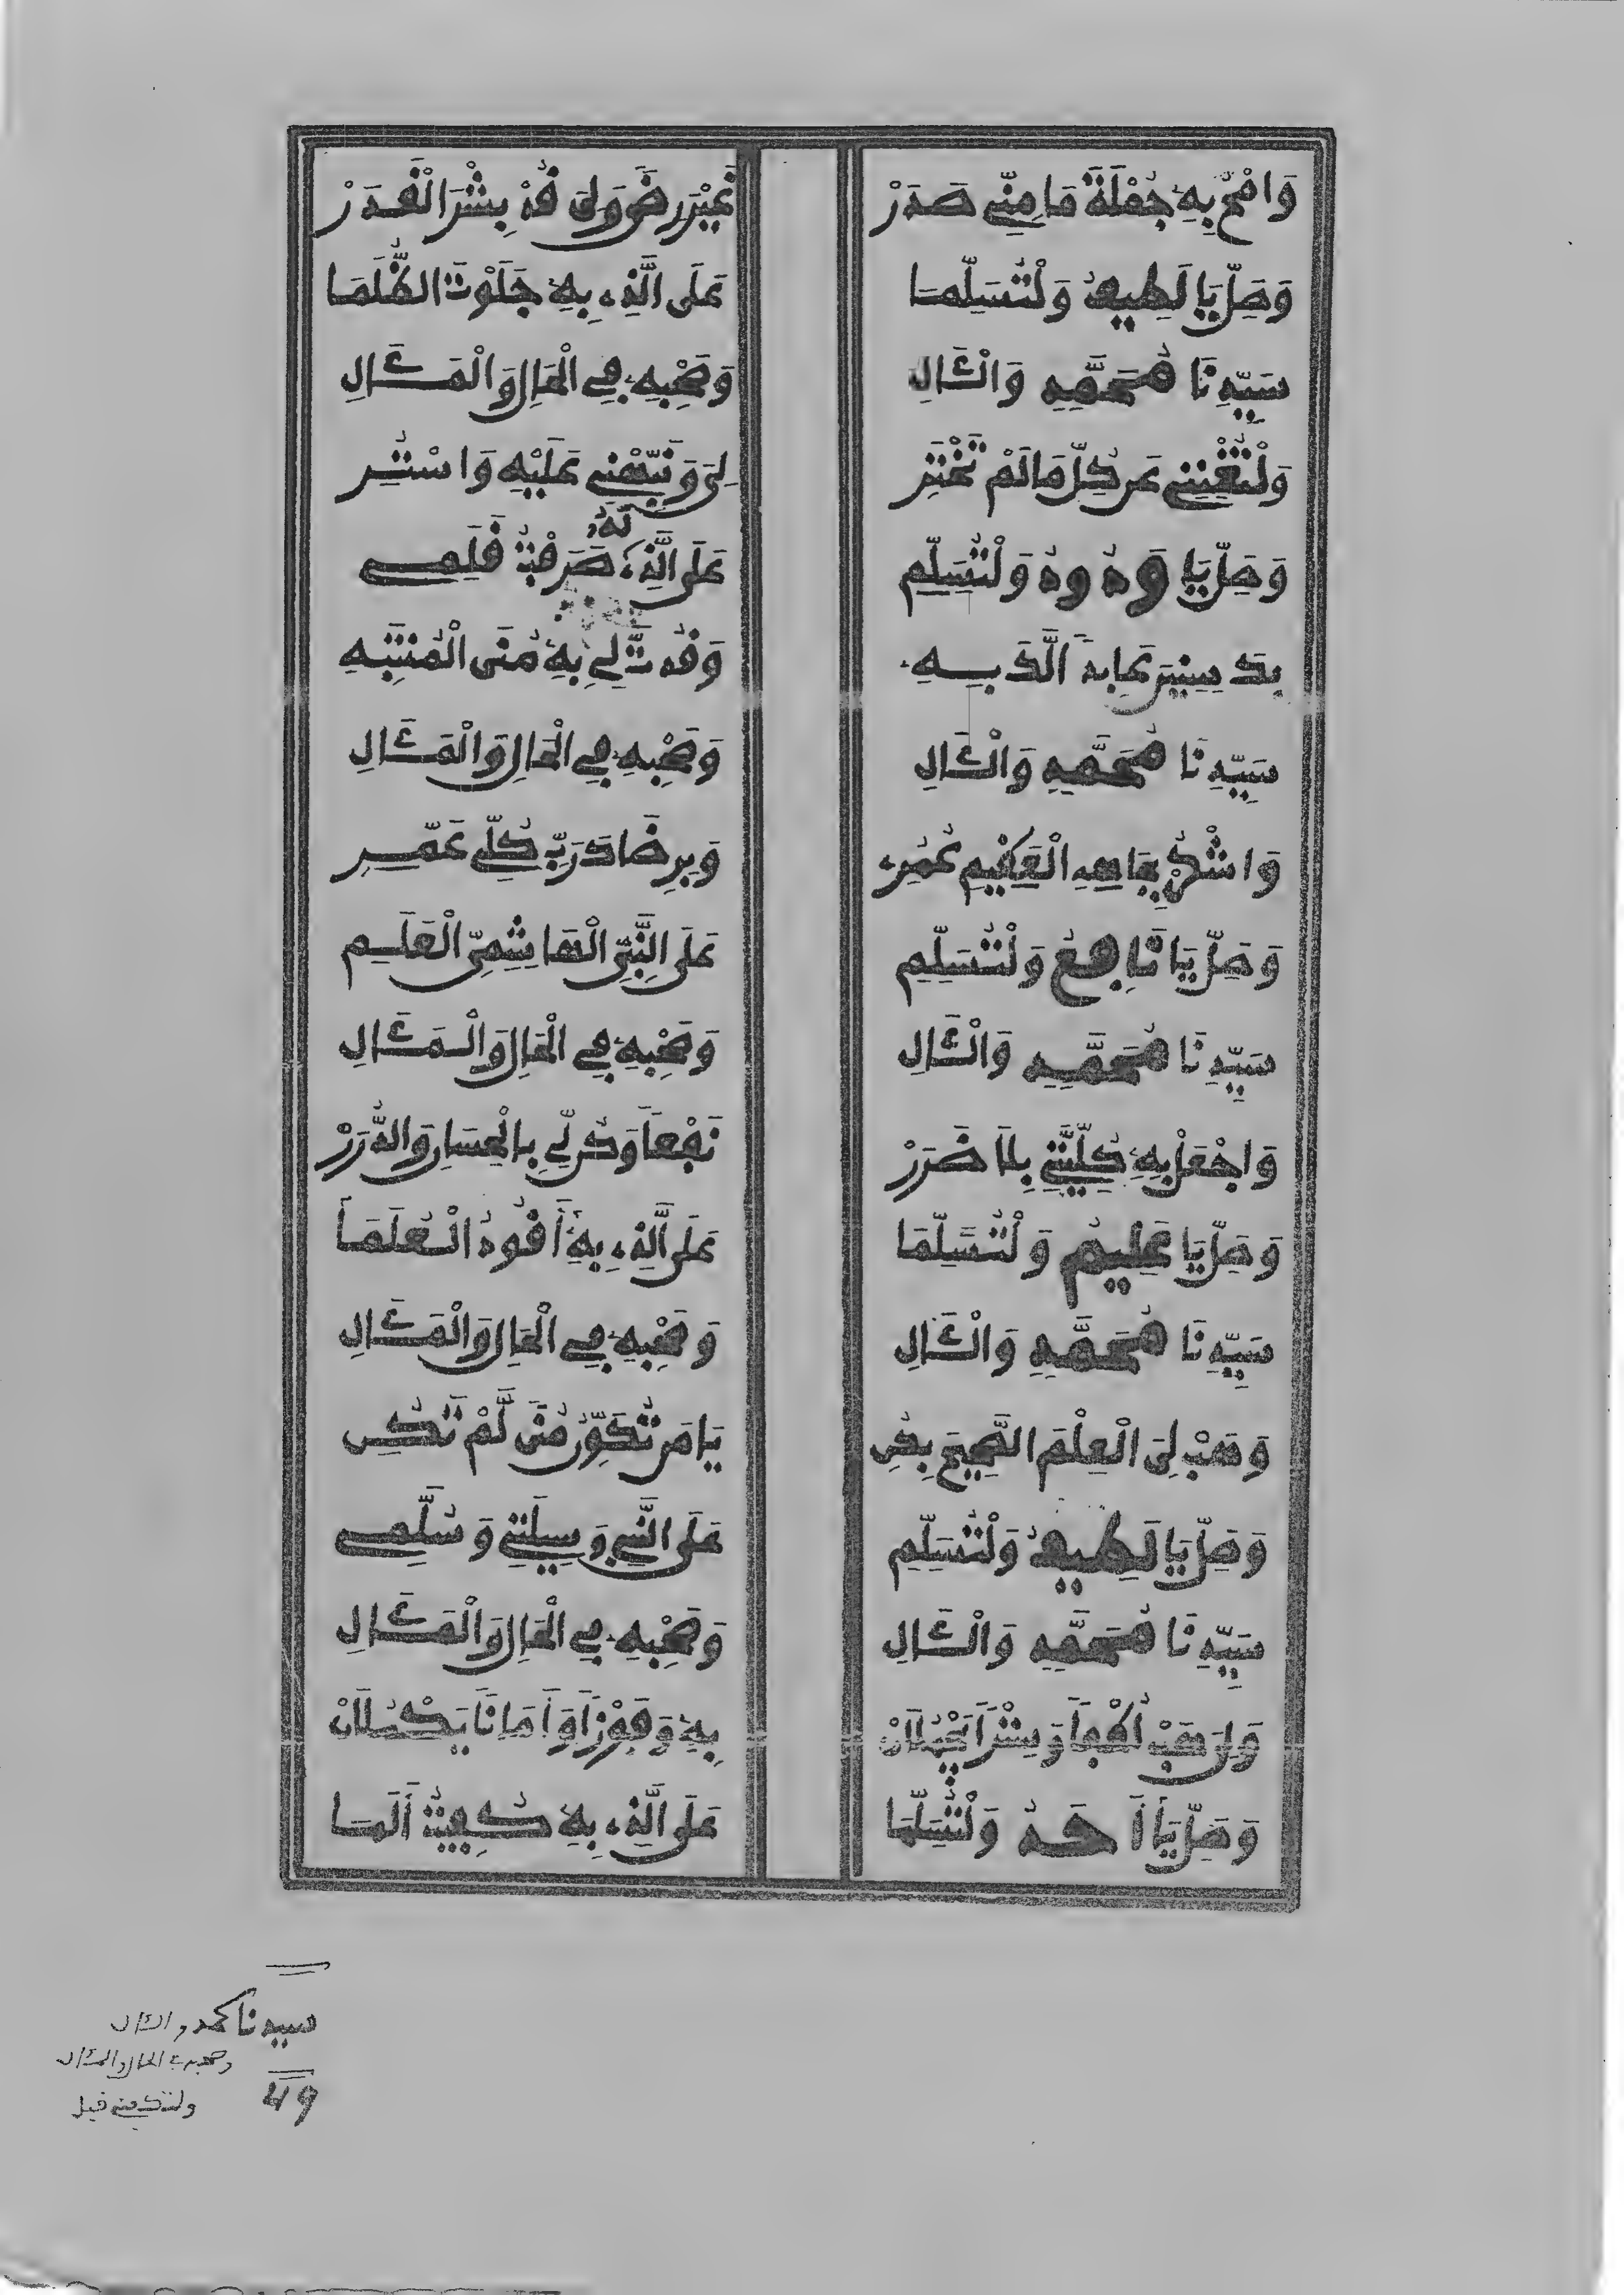 وَامْحُ بِهِ جُمْلَةَ مَا مِنِّي صَدَرْ غَيْرَ رِضًى وَلِيَ قُدْ بِشْرَ الْقَدَرْ
وَصَلِّ يَا لَطِيفُ وَلْتُسَلِّمَا عَلَى الَّذِي بِهِ جَلَوْتَ الظُّلَمَا
سَيِّدِنَا مُحَمَّدٍ وَالْئَالِ وَصَحْبِهِ فِي الْحَالِ وَالْمَئَالِ
وَلْتُغْنِنِي عَن كُلِّ مَا لَمْ تَخْتَرِ لِيَ وَنَبِّهْنِي عَلَيْهِ وَاسْتُرِ
وَصَلِّ يَا وَدُودُ وَلْتُسَلِّمِ عَلَى الَّذِي لَهُ صَرَفْتُ قَلَمِي
سَيِّدِنَا مُحَمَّدٍ وَالْئَالِ وَصَحْبِهِ فِي الْحَالِ وَالْمَئَالِ
وَاشْكُرْ بِجَاهِهِ الْعَظِيمِ عُمُرِي وَبِرِضَاكَ رَبِّ كُلِّي عَمِّرِ
وَصَلِّ يَا نَافِعُ وَلْتُسَلِّمِ عَلَى النَّبِيِّ الْهَاشِمِيِّ الْعَلَمِ
سَيِّدِنَا مُحَمَّدٍ وَالْئَالِ وَصَحْبِهِ فِي الْحَالِ وَالْمَئَالِ
وَاجْعَلْ بِهِ كُلِّيَّتِي بِلَا ضَرَرْ نَفْعًا وَكُن لِّي بِالْحِسَانِ وَالدُّرَرْ
وَصَلِّ يَا عَلِيمُ وَلْتُسَلِّمَا عَلَى الَّذِي بِهِ أَقُودُ الْعُلَمَا
سَيِّدِنَا مُحَمَّدٍ وَالْئَالِ وَصَحْبِهِ فِي الْحَالِ وَالْمَئَالِ
وَهَبْ لِيَ الْعِلْمَ الصَّحِيحَ بِكُنِ يَا مَن تُكَوِّنُ مُنًى لَّمْ تَكُنِ
وَصَلِّ يَا لَطِيفُ وَلْتُسَلِّمِ عَلَى النَّبِي وَسِيلَتِي وَسُلَّمِي
سَيِّدِنَا مُحَمَّدٍ وَالْئَالِ وَصَحْبِهِ فِي الْحَالِ وَالْمَئَالِ
وَلِيَ هَبْ لُطْفًا وَبِشْرًا يَجْمُلَانْ بِهِ وَفَوْزًا وَأَمَانًا يَكْمُلَانْ
وَصَلِّ يَا أَحَدُ وَلْتُسَلِّمَا عَلَى الَّذِي بِهِ كُفِيتُ أَلَمَا
سيدنا محمد والئال
وصحبه في الحال والمئال
49
ولتكفني قبل